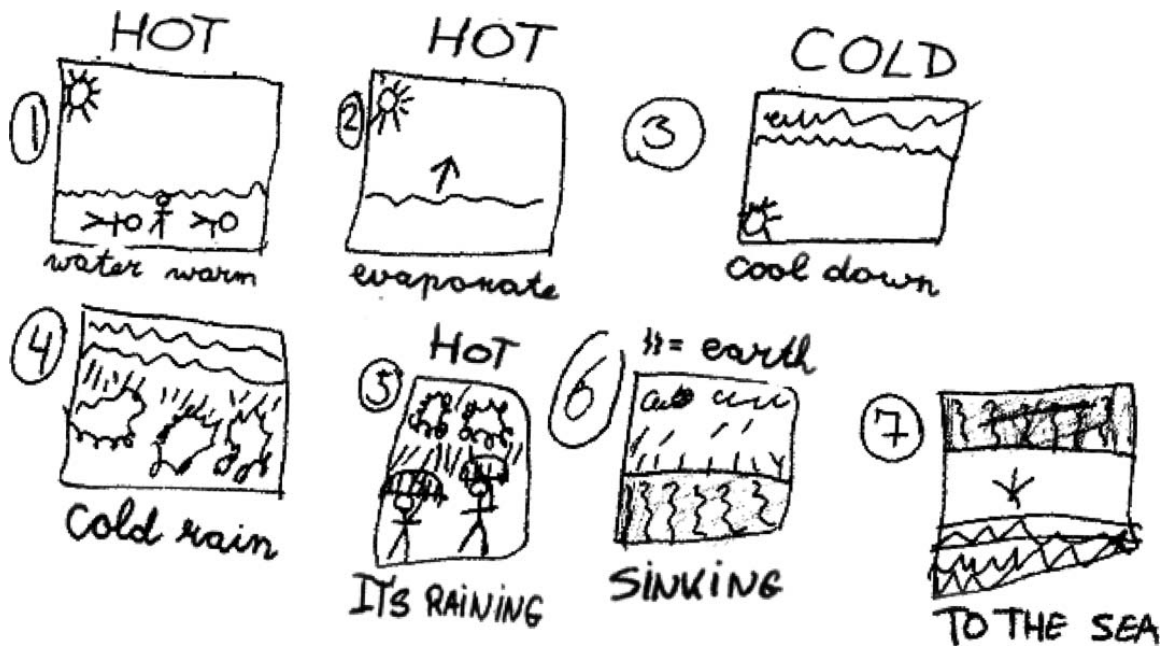 HOT
1
water warm
HOT
2
evaporate
COLD
3
cool down
4
cold rain
HOT
5
ITS RAINING
6
= earth
SINKING
7
TO THE SEA